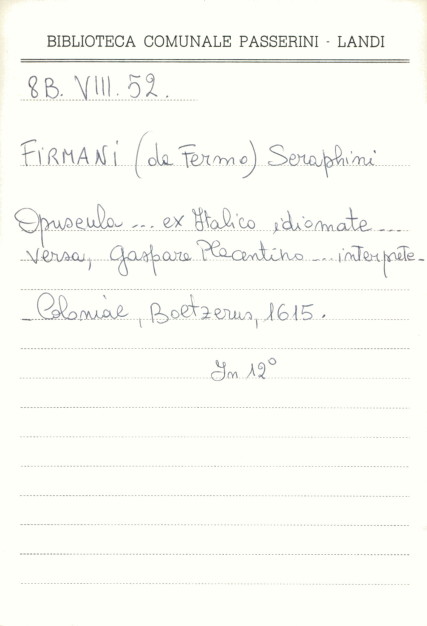 BIBLIOTECA COMUNALE PASSERINI - LANDI
8B. VIII. 52.
FIRMANI (da Fermo) Seraphini
Opuscula ... ex Italico idiomate ...
versa, Gaspare Placentino ... interprete -
- Coloniae, Boetzerus, 1615.
In 12°